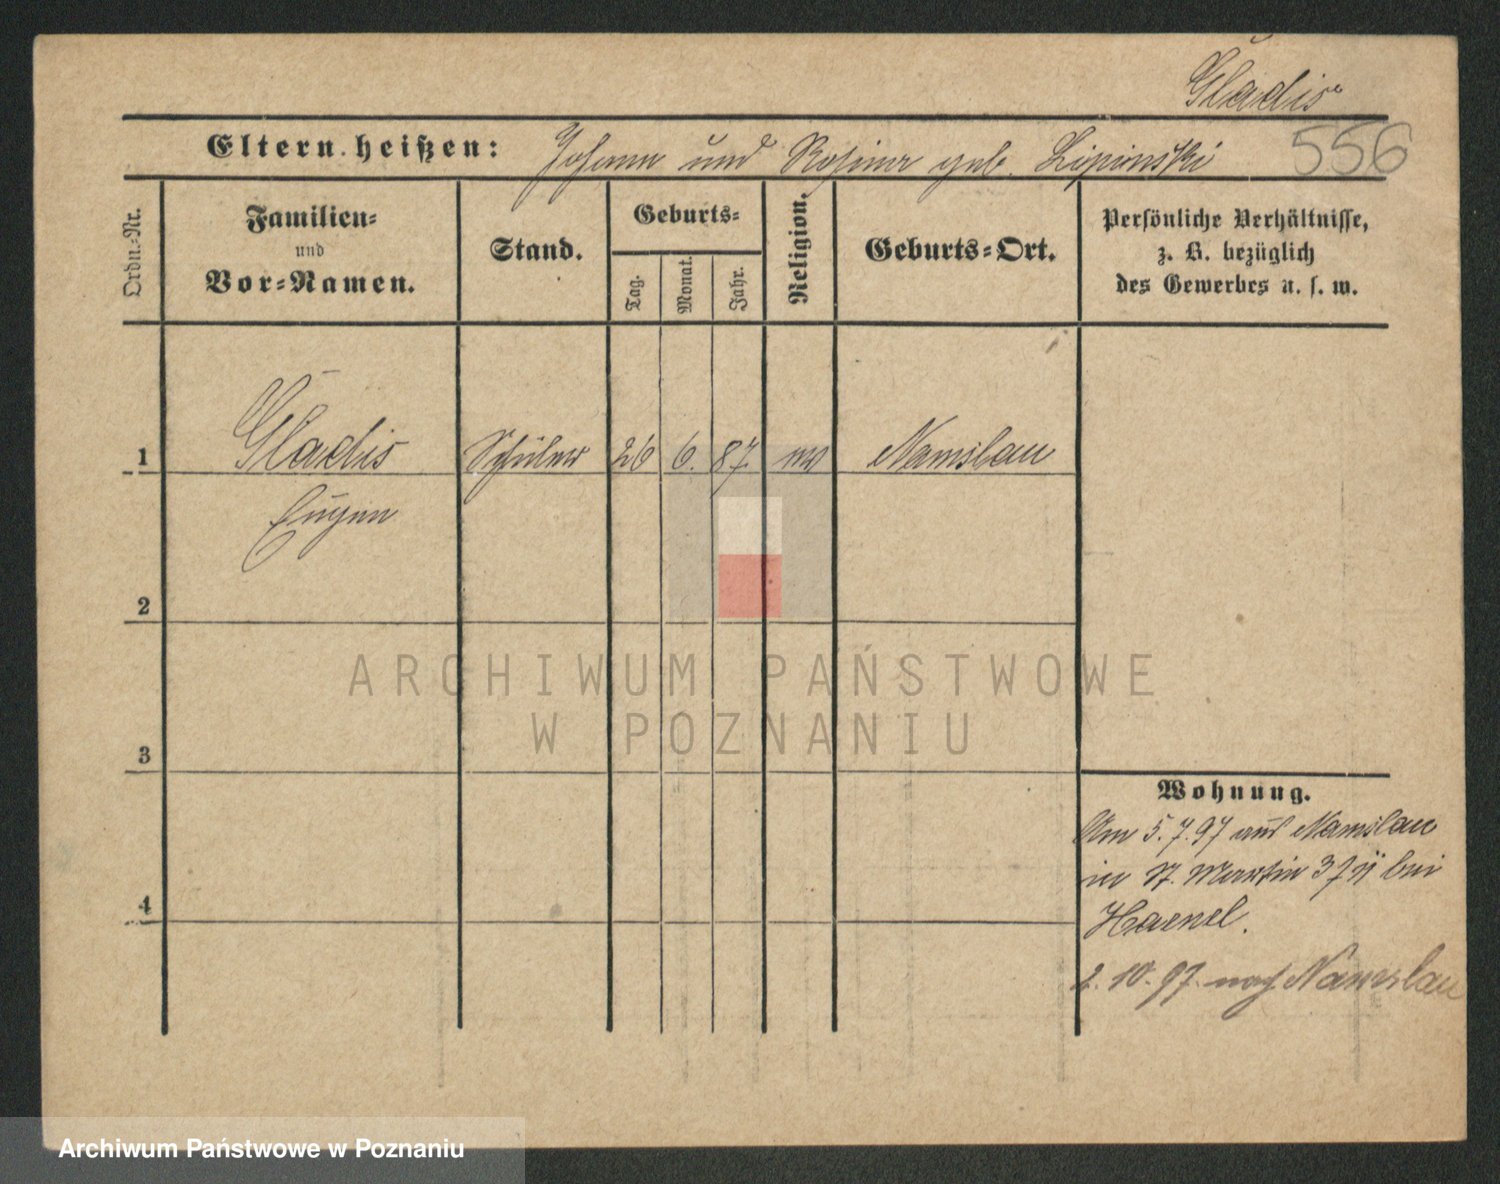 Gladis
Eltern heißen: Johann und Rosina geb. Lipinski 556
Ordn.-Nr.
Familien-
und
Vor-Namen.
Stand.
Geburts-
Tag.
Monat.
Jahr.
Religion.
Geburts-Ort.
Persönliche Verhältnisse,
z. B. bezüglich
des Gewerbes u. s. w.
1 Gladis Schüler 26 6. 87. ev Namslau
Eugen
2
3
4
Wohnung.
Am 5.7.97 aus Namslau
in St. Martin 37 II bei
Haenel.
2.10.97 nach Namslau
ARCHIWUM PAŃSTWOWE
W POZNANIU
Archiwum Państwowe w Poznaniu